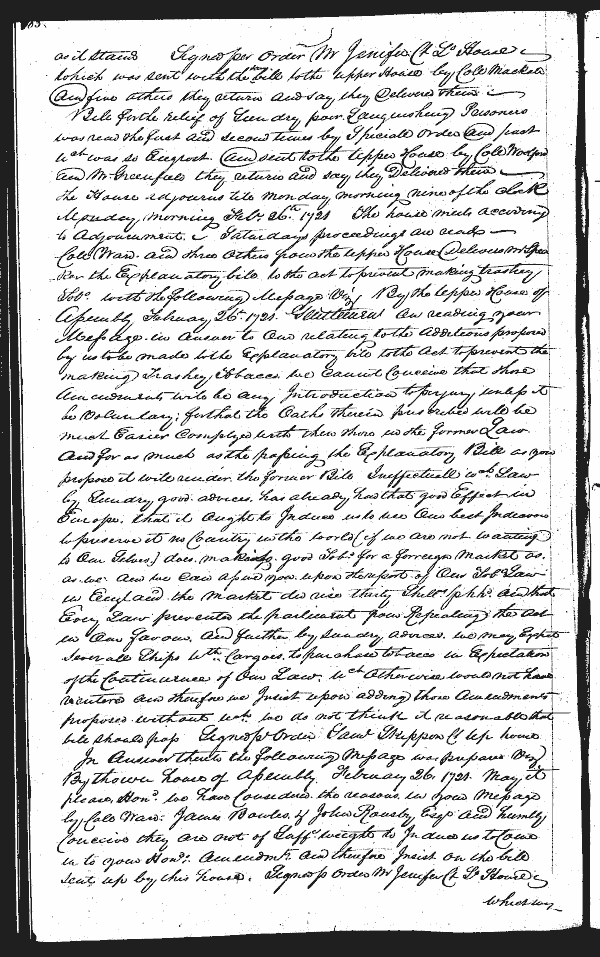 as it stands Signed p Order Mr Jenifer Cl Lo House
which was sent with the bill to the upper House by Colo Mackall
And five others they return and say they Delivered them
Bill for the relief of Sundry poor Languishing Prisoners
was read the first and second times by Speciale Order And past
wct was so Engrost. And sent to the Upper House by Colo
and Mr Greenfield they return and say they Delivered them
the House adjourns till monday morning nine of the clock
Monday morning Feby 26th 1721 The house meets according
to Adjournment. Saturdays proceedings are read
Colo Ward and three Others from the upper House Delivers Mr Spea
ker the Explanatory bill to the act to prevent making trashey
Tobo with the following Message Viz By the upper House of
Assembly February 26th 1721. Gentlemen On reading your
Message in answer to Our relating to the Additions proposed
by us to be made to the Explanatory bill to the Act to prevent the
making Trashey Tobacco we cannot Conceive that those
Amendments will be any Introduction to perjury unless it
be Voluntary; for that the Oaths therein prescribed will be
much Easier Complyed with then those in the former Law
And for as much as the passing the Explanatory Bill as you
propose it will render the former Bill Ineffectuall wch Law
by Sundry good advices has already had that good Effect in
Europe, that it ought to Induce us to use Our best Endeavors
to preserve it no Country in the world (if we are not wanting
to Our Selves) does making good Tobo for a forreign Market as
as we and we can assure you upon the report of Our Tobo Law
in England the Market did rise thirty Shills p hhd and that
Every Law prevented the parliament from Repealing the act
in Our favour And further by sundry advices we may Expect
severall Ships wth Cargoes to purchase tobacco in Expectation
of the Continuance of Our Law. wct otherwise would not have
ventured and therefore we Insist upon adding those Amendments
proposed without wct we do not think it reasonable that
bill should pass Signed p Order Saml Skippon Cl up house
In Answer thereto the following Message was prepared Viz
By the lower house of Assembly February 26 1721. May it
please Honrs we have Considered the reasons in your Message
by Colo Ward James Bowles & John Rousby Esqr And humbly
Conceive they are not of Sufft weight to Induce us to Come
in to your Honrs Amendmts And therefore Insist on the bill
sent up by this house. Signed p Order Mr Jenifer Cl Lo House
which was